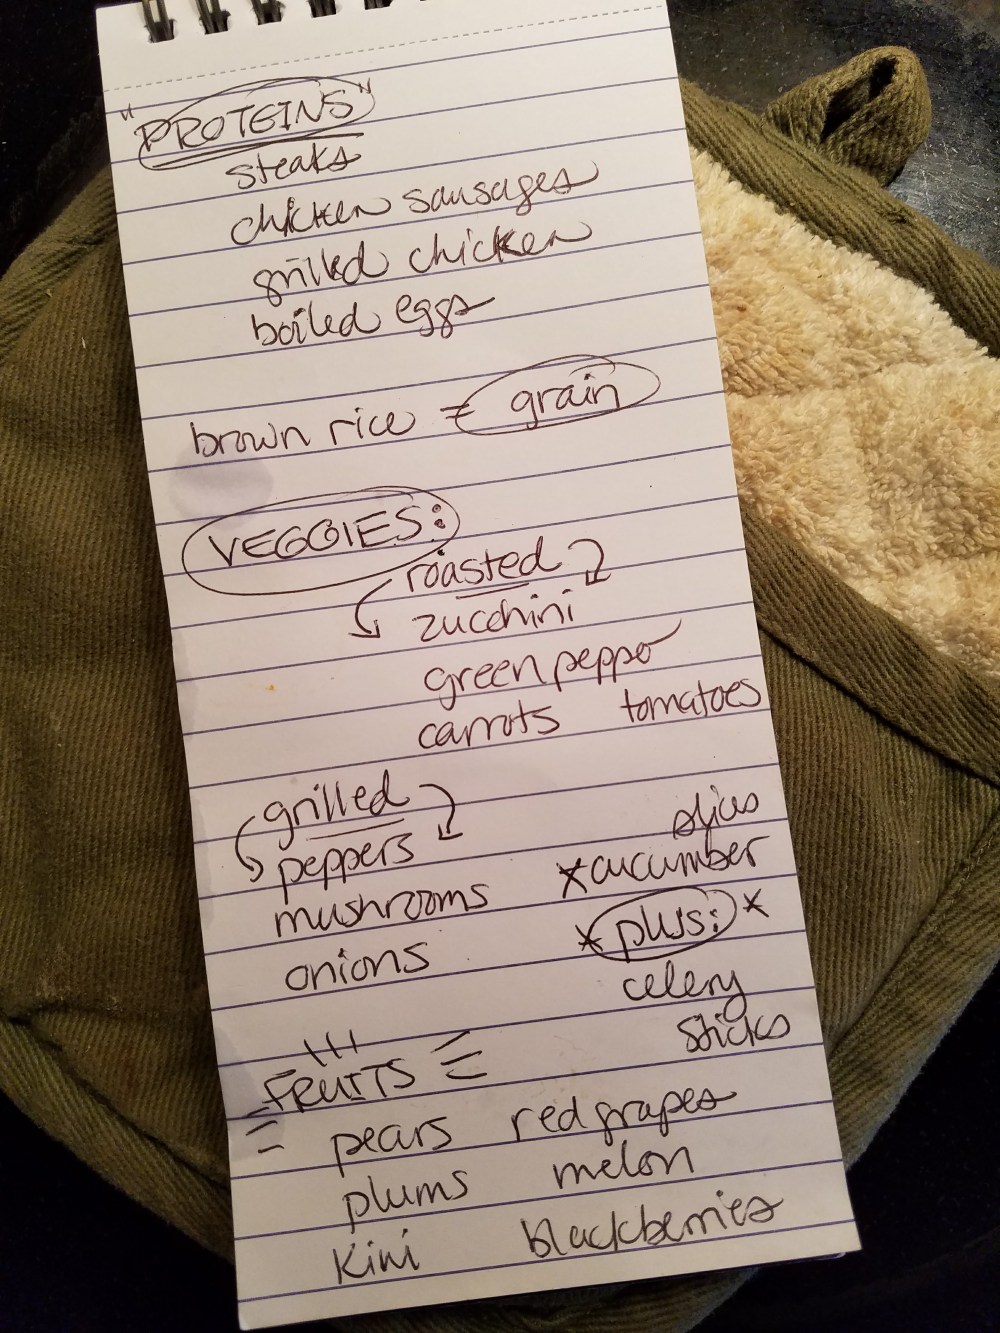 "PROTEINS"
steaks
chicken sausages
grilled chicken
boiled eggs
brown rice = grain
VEGGIES:
roasted
zucchini
green pepper
carrots tomatoes
grilled
peppers
mushrooms
onions
slices
*cucumber
*plus:*
celery
sticks
FRUITS
pears red grapes
plums melon
kiwi blackberries